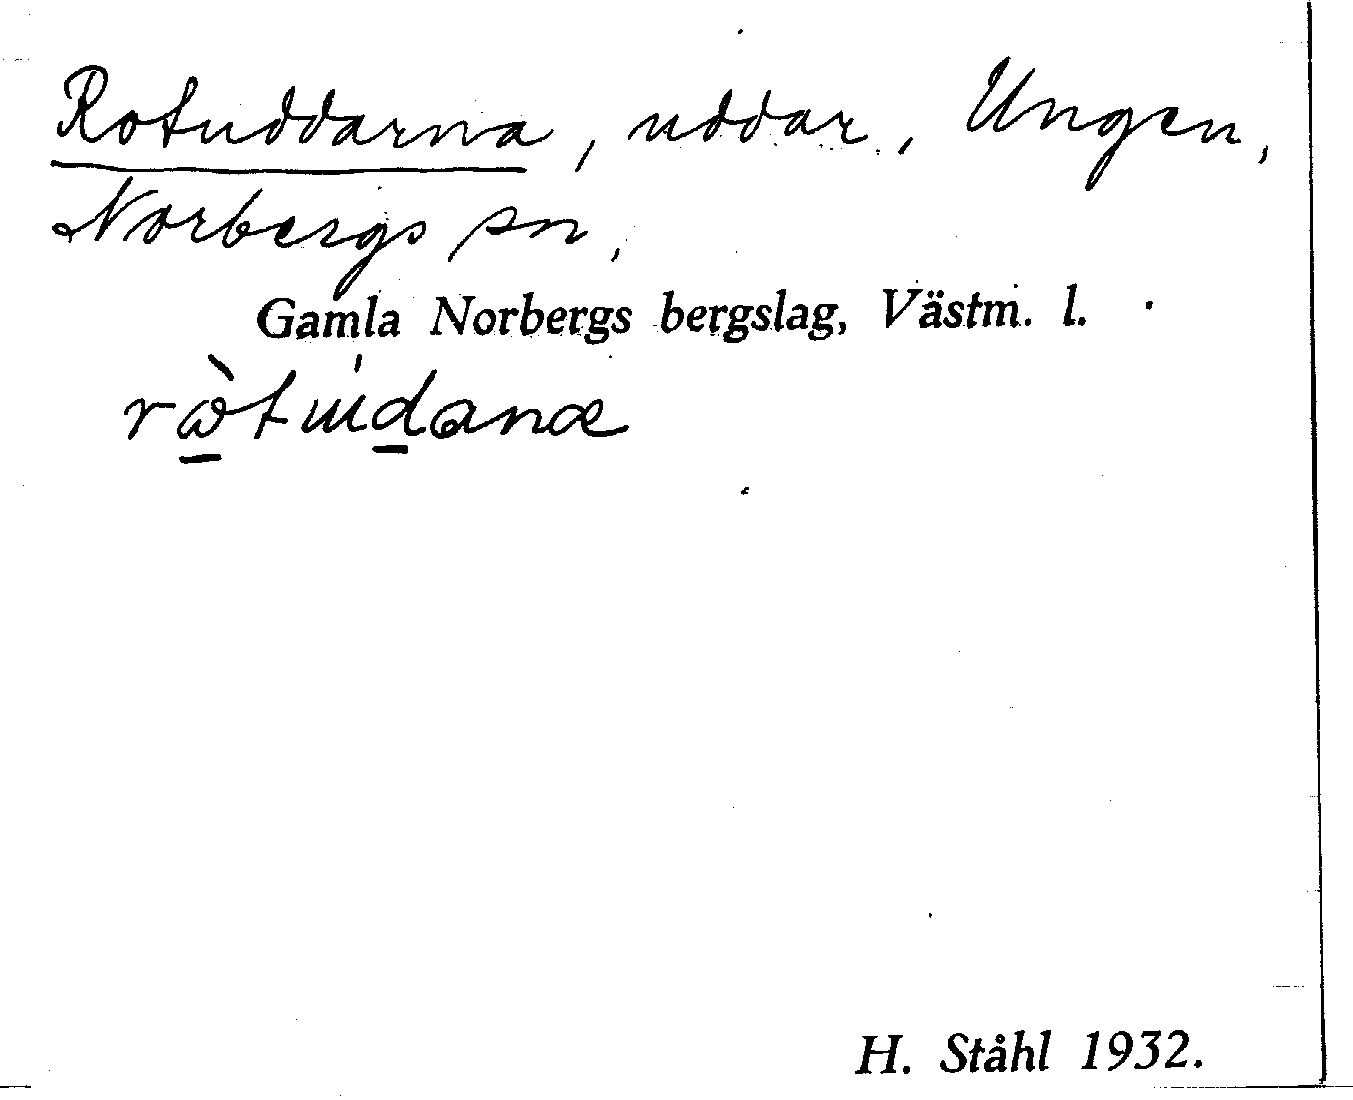 Rotuddarna, uddar, Ungen,
Norbergs sn,
Gamla Norbergs bergslag, Västm. l.
H. Ståhl 1932.